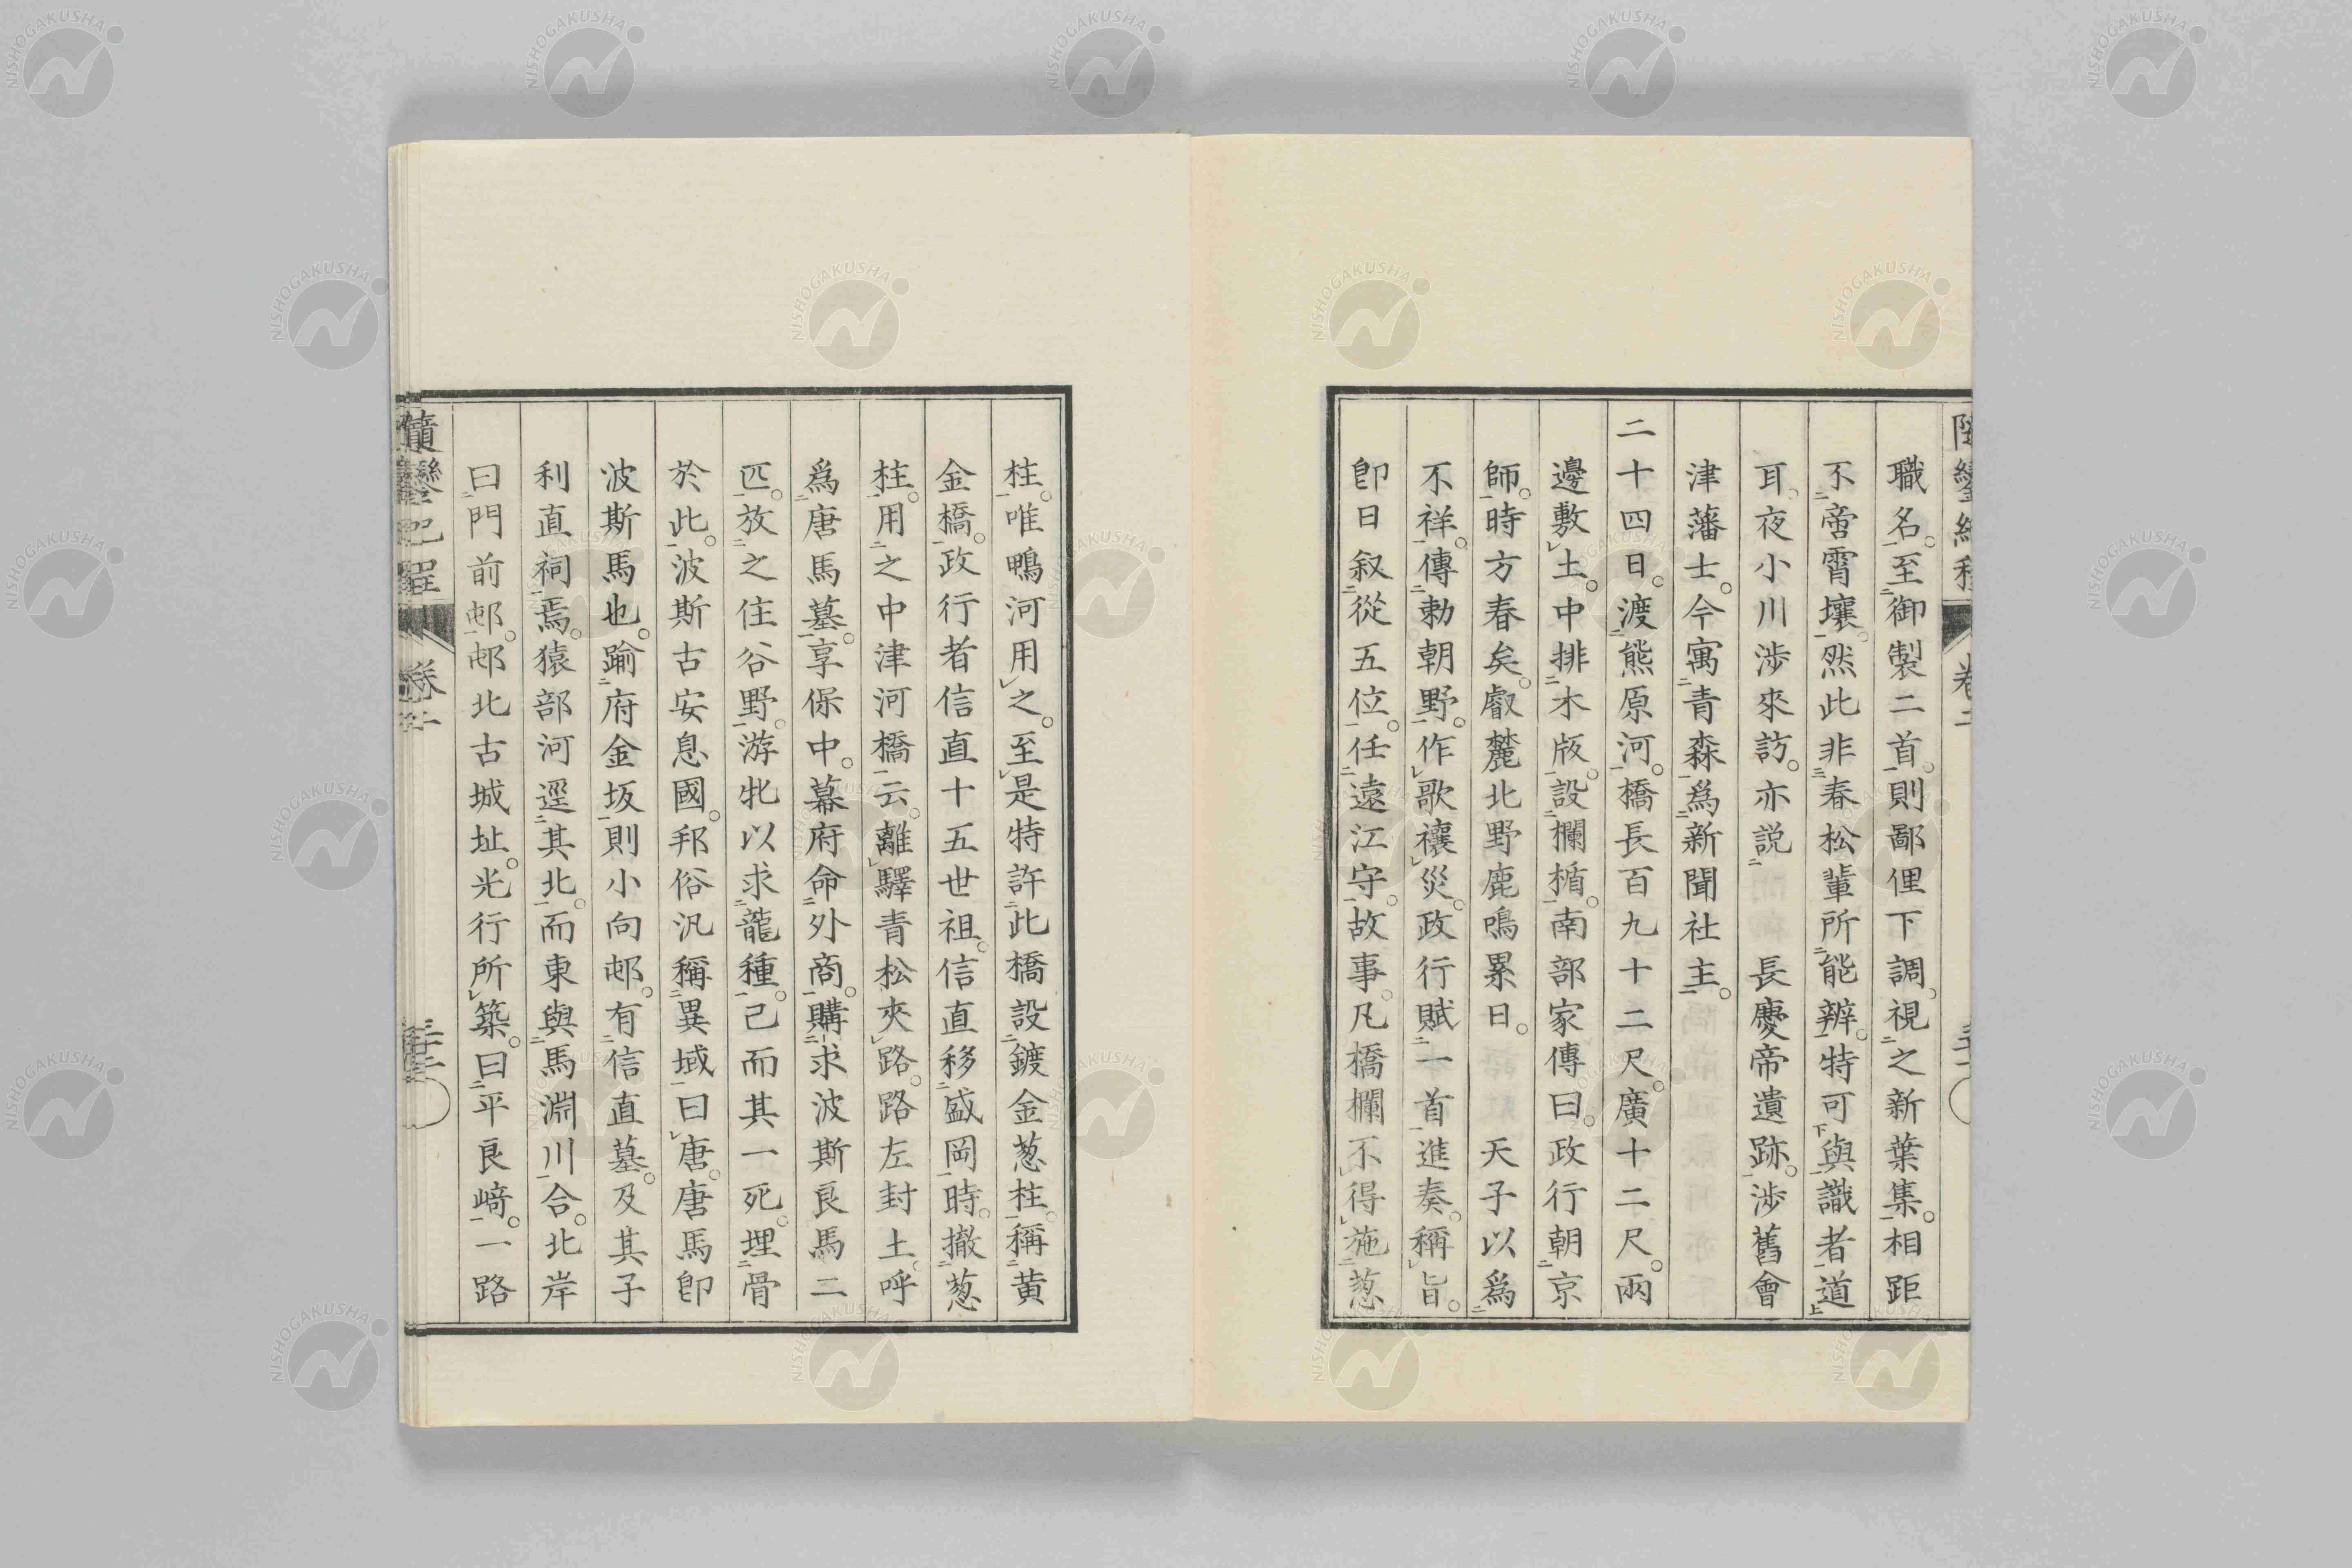 職名。至御製二首。則鄙俚下調。視之新葉集。相距
不啻霄壤。然此非春松輩所能辨。特可與識者道
耳。夜小川渉來訪。亦説 長慶帝遺跡。渉舊會
津藩士。今寓青森。爲新聞社主。
二十四日。渡熊原河。橋長百九十二尺。廣十二尺。兩
邊敷土。中排木版。設欄楯。南部家傳曰。政行朝京
師。時方春矣。叡麓北野鹿鳴累日。 天子以爲
不祥。傳勅朝野。作歌禳災。政行賦一首進奏。稱旨。
卽日叙從五位。任遠江守。故事。凡橋欄不得施葱
柱。唯鴨河用之。至是特許此橋設鍍金葱柱。稱黄
金橋。政行者信直十五世祖。信直移盛岡時。撤葱
柱。用之中津河橋云。離驛青松夾路。路左封土。呼
爲唐馬墓。享保中。幕府命外商。購求波斯良馬二
匹。放之住谷野。游牝以求龍種。已而其一死。埋骨
於此。波斯古安息國。邦俗汎稱異域曰唐。唐馬卽
波斯馬也。踰府金坂。則小向邨。有信直墓。及其子
利直祠焉。猿部河逕其北。而東與馬淵川合。北岸
曰門前邨。邨北古城址。光行所築。曰平良﨑。一路
卷二
NISHOGAKUSHA